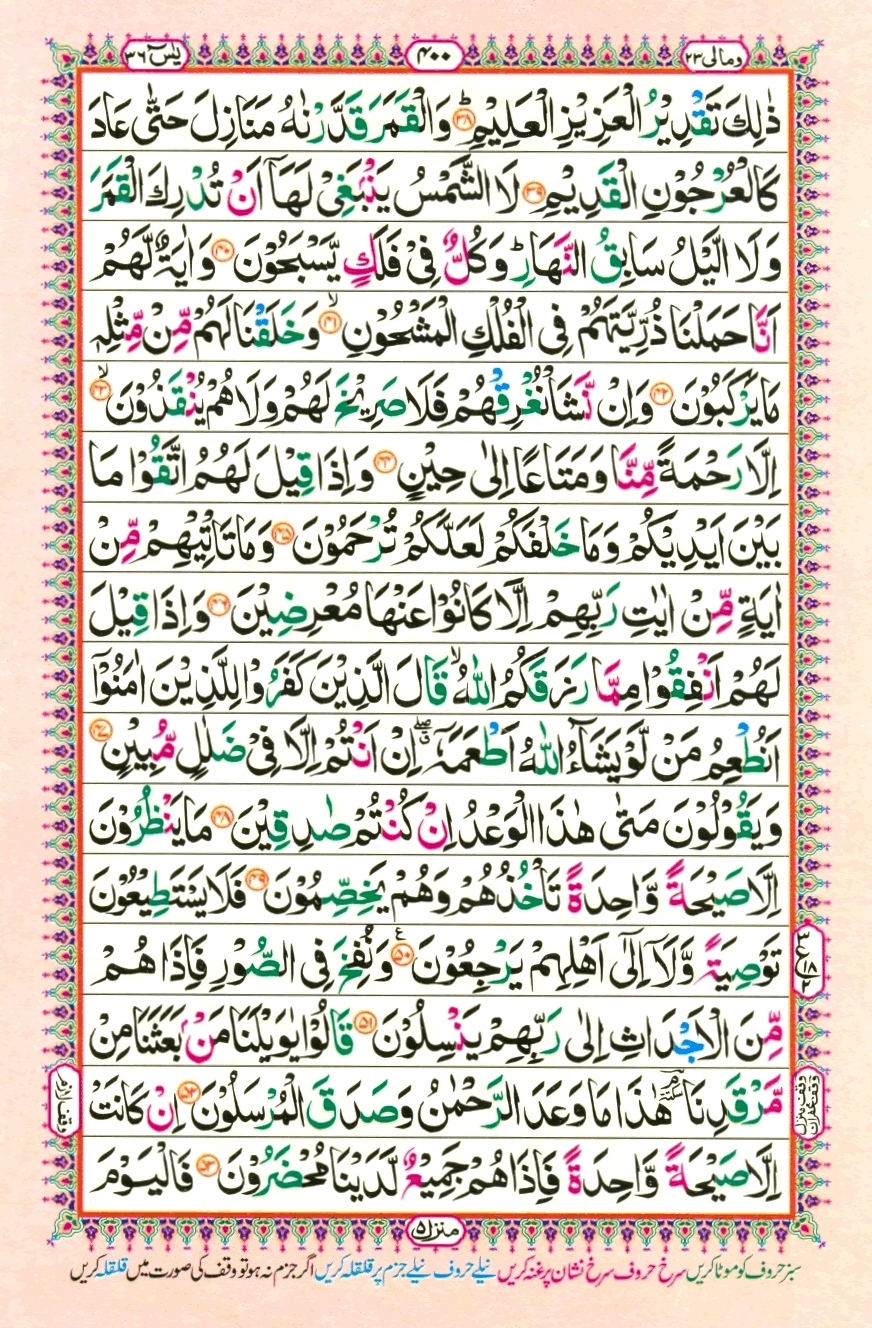 وما لی ۲۳
۴۰۰
یٰسٓ ۳۶
ذٰلِكَ تَقْدِیْرُ الْعَزِیْزِ الْعَلِیْمِ ؕ﴿۳۸﴾ وَالْقَمَرَ قَدَّرْنٰهُ مَنَازِلَ حَتّٰى عَادَ
كَالْعُرْجُوْنِ الْقَدِیْمِ ﴿۳۹﴾ لَا الشَّمْسُ یَنْۢبَغِیْ لَهَاۤ اَنْ تُدْرِكَ الْقَمَرَ
وَلَا الَّیْلُ سَابِقُ النَّهَارِ ؕ وَكُلٌّ فِیْ فَلَكٍ یَّسْبَحُوْنَ ﴿۴۰﴾ وَاٰیَةٌ لَّهُمْ
اَنَّا حَمَلْنَا ذُرِّیَّتَهُمْ فِی الْفُلْكِ الْمَشْحُوْنِ ۙ﴿۴۱﴾ وَخَلَقْنَا لَهُمْ مِّنْ مِّثْلِهٖ
مَا یَرْكَبُوْنَ ﴿۴۲﴾ وَاِنْ نَّشَاْ نُغْرِقْهُمْ فَلَا صَرِیْخَ لَهُمْ وَلَا هُمْ یُنْقَذُوْنَ ۙ﴿۴۳﴾
اِلَّا رَحْمَةً مِّنَّا وَمَتَاعًا اِلٰى حِیْنٍ ﴿۴۴﴾ وَاِذَا قِیْلَ لَهُمُ اتَّقُوْا مَا
بَیْنَ اَیْدِیْكُمْ وَمَا خَلْفَكُمْ لَعَلَّكُمْ تُرْحَمُوْنَ ﴿۴۵﴾ وَمَا تَاْتِیْهِمْ مِّنْ
اٰیَةٍ مِّنْ اٰیٰتِ رَبِّهِمْ اِلَّا كَانُوْا عَنْهَا مُعْرِضِیْنَ ﴿۴۶﴾ وَاِذَا قِیْلَ
لَهُمْ اَنْفِقُوْا مِمَّا رَزَقَكُمُ اللّٰهُ ۙ قَالَ الَّذِیْنَ كَفَرُوْا لِلَّذِیْنَ اٰمَنُوْۤا
اَنُطْعِمُ مَنْ لَّوْ یَشَآءُ اللّٰهُ اَطْعَمَهٗۤ ۖق اِنْ اَنْتُمْ اِلَّا فِیْ ضَلٰلٍ مُّبِیْنٍ ﴿۴۷﴾
وَیَقُوْلُوْنَ مَتٰى هٰذَا الْوَعْدُ اِنْ كُنْتُمْ صٰدِقِیْنَ ﴿۴۸﴾ مَا یَنْظُرُوْنَ
اِلَّا صَیْحَةً وَّاحِدَةً تَاْخُذُهُمْ وَهُمْ یَخِصِّمُوْنَ ﴿۴۹﴾ فَلَا یَسْتَطِیْعُوْنَ
تَوْصِیَةً وَّلَاۤ اِلٰۤى اَهْلِهِمْ یَرْجِعُوْنَ ﴿۵۰﴾ع وَنُفِخَ فِی الصُّوْرِ فَاِذَا هُمْ
مِّنَ الْاَجْدَاثِ اِلٰى رَبِّهِمْ یَنْسِلُوْنَ ﴿۵۱﴾ قَالُوْا یٰوَیْلَنَا مَنْۢ بَعَثَنَا مِنْ
مَّرْقَدِنَا ۘؐ هٰذَا مَا وَعَدَ الرَّحْمٰنُ وَصَدَقَ الْمُرْسَلُوْنَ ﴿۵۲﴾ اِنْ كَانَتْ
اِلَّا صَیْحَةً وَّاحِدَةً فَاِذَا هُمْ جَمِیْعٌ لَّدَیْنَا مُحْضَرُوْنَ ﴿۵۳﴾ فَالْیَوْمَ
منزل ۵
سبز حروف کو موٹا کریں سرخ حروف سرخ نشان پر غنہ کریں نیلے حروف نیلے جزم پر قلقلہ کریں اگر جزم نہ ہو تو وقف کی صورت میں قلقلہ کریں